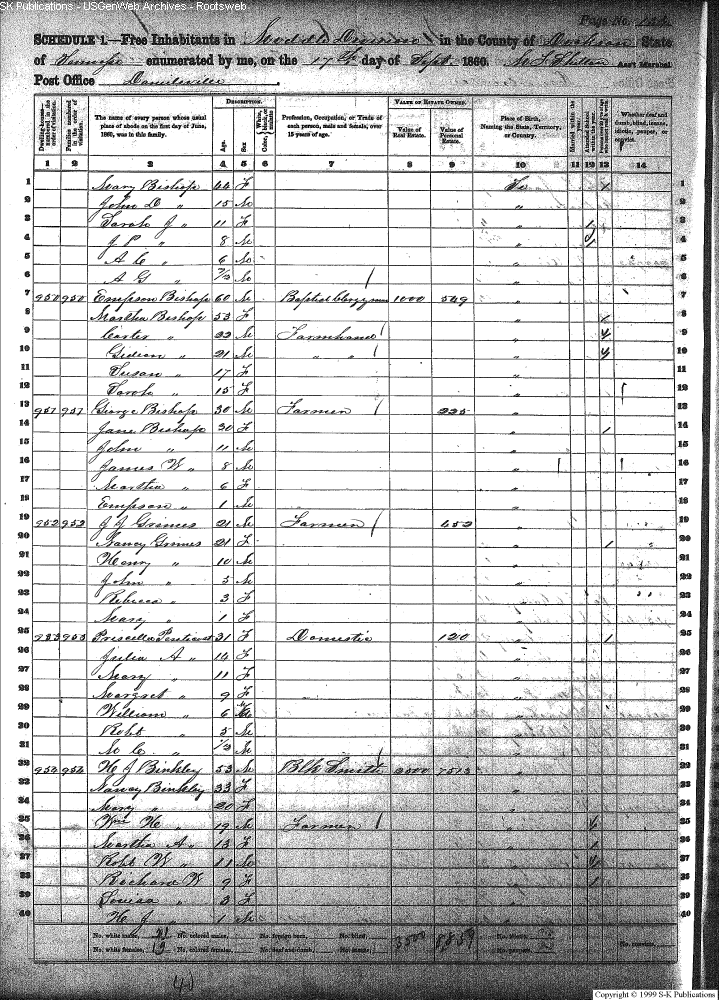 SK Publications - USGenWeb Archives - Rootsweb
Page No.
SCHEDULE 1.—Free Inhabitants in Middle Division in the County of Dickson State
of Tennessee enumerated by me, on the 17th day of Sept. 1860. Ass't Marshal
Post Office Danielsville
DESCRIPTION. VALUE OF ESTATE OWNED.
Dwelling-houses—numbered in the order of visitation. Families numbered in the order of visitation. The name of every person whose usual place of abode on the first day of June, 1860, was in this family. Age. Sex. White, Color, black, or mulatto. Profession, Occupation, or Trade of each person, male and female, over 15 years of age. Value of Real Estate. Value of Personal Estate. Place of Birth, Naming the State, Territory, or Country. Married within the year. Attended School within the year. Whether deaf and dumb, blind, insane, idiotic, pauper, or convict.
1 2 3 4 5 6 7 8 9 10 11 12 13 14
1 Mary Bishop 44 F Te 1 1
2 John D " 15 M " 2
3 Sarah J " 11 F " 1 3
4 J P " 8 M " 1 4
5 A C " 6 M " 5
6 A G " 7/12 M " 6
7 950 950 Empson Bishop 60 M Baptist Clergyman 1000 549 " 7
8 Martha Bishop 53 F " 1 8
9 Carter " 22 M Farmhand " 9
10 Gidian " 21 M " " " 10
11 Susan " 17 F " 11
12 Sarah " 15 F " 12
13 951 951 George Bishop 30 M Farmer 225 " 13
14 Jane Bishop 30 F " 1 14
15 John " 11 M " 15
16 James W " 8 M " 16
17 Martha " 6 F " 17
18 Empson " 1 M " 18
19 952 952 J J Grimes 21 M Farmer 452 " 19
20 Nancy Grimes 21 F " 1 20
21 Henry " 10 M " 21
22 John " 5 M " 22
23 Rebecca " 3 F " 23
24 Mary " 1 F " 24
25 953 953 Priscilla 31 F Domestic 120 " 1 25
26 Julia A " 14 F " 26
27 Mary " 11 F " 27
28 Margret " 9 F " 28
29 William " 6 M " 29
30 Robt " 5 M " 30
31 M C " 1/2 M " 31
32 954 954 H J Binkley 53 M Blk Smith 2500 7513 " 32
33 Nancy Binkley 33 F " 33
34 Mary " 20 F " 34
35 Wm H " 19 M Farmer " 35
36 Martha A " 13 F " 1 36
37 Robt W " 11 M " 37
38 Richard W 9 F " 1 38
39 Louisa " 3 F " 39
40 H J " 1 M " 40
No. white males, 21 No. colored males, No. foreign born, No. blind, 3500 8859 No. idiotic,
No. white females, 19 No. colored females, No. deaf and dumb, No. insane, No. paupers, No. convicts,
Copyright © 1999 S-K Publications